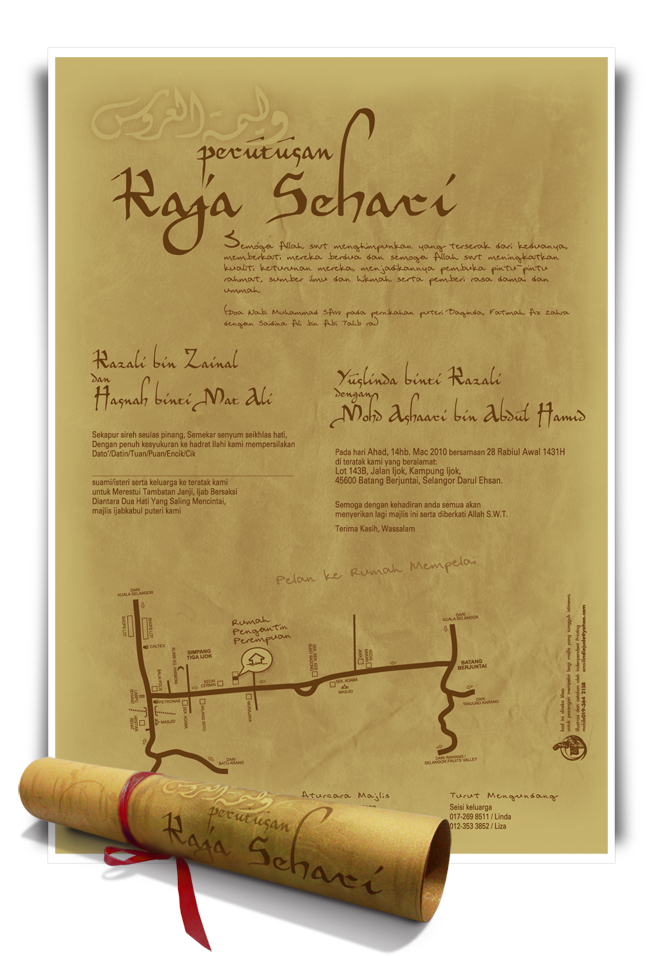 وليمة العروس
perutusan
Raja Sehari
Semoga Allah swt menghimpunkan yang terserak dari keduanya,
memberkati mereka berdua dan semoga Allah swt meningkatkan
kualiti keturunan mereka, menjadikannya pembuka pintu-pintu
rahmat, sumber ilmu dan hikmah serta pemberi rasa damai dan
ummah.
(Doa Nabi Muhammad SAW pada pernikahan puteri Baginda, Fatimah Az Zahra
dengan Saidina Ali bin Abi Talib ra)
Razali bin Zainal
dan
Hasnah binti Mat Ali
Sekapur sireh seulas pinang, Semekar senyum seikhlas hati,
Dengan penuh kesyukuran ke hadrat Ilahi kami mempersilakan
Dato'/Datin/Tuan/Puan/Encik/Cik
suami/isteri serta keluarga ke teratak kami
untuk Merestui Tambatan Janji, Ijab Bersaksi
Diantara Dua Hati Yang Saling Mencintai,
majlis ijabkabul puteri kami
Yuslinda binti Razali
dengan
Mohd Ashaari bin Abdul Hamid
Pada hari Ahad, 14hb. Mac 2010 bersamaan 28 Rabiul Awal 1431H
di teratak kami yang beralamat:
Lot 143B, Jalan Ijok, Kampung Ijok,
45600 Batang Berjuntai, Selangor Darul Ehsan.
Semoga dengan kehadiran anda semua akan
menyerikan lagi majlis ini serta diberkati Allah S.W.T.
Terima Kasih, Wassalam
Pelan ke Rumah Mempelai
DARI
KUALA SELANGOR
CALTEX
SIMPANG
TIGA IJOK
Rumah
Pengantin
Perempuan
KEDAI
CERMIN
PETRONAS
MASJID
DARI
BATU ARANG
SEK. AGAMA
MASJID
DARI
KUALA SELANGOR
BATANG
BERJUNTAI
DARI
TANJUNG KARANG
DARI RAWANG /
SELANGOR FRUITS VALLEY
Aturcara Majlis
Turut Mengundang
Seisi keluarga
017-269 8511 / Linda
012-353 3852 / Liza
وليمة العروس
perutusan
Raja Sehari